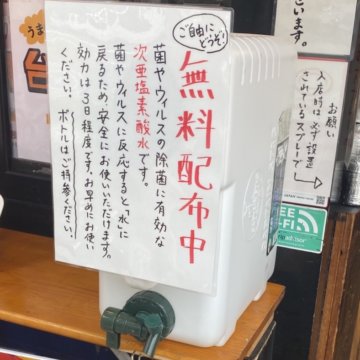 ご自由に
どうぞ!
無料配布中
菌やウィルスの除菌に有効な
次亜塩素酸水です。
菌やウィルスに反応すると「水」に
戻るため、安全にお使いいただけます。
効力は3日程度です。お早めにお使い
ください。ボトルはご持参ください。
います。
お願い
入店時は必ず設置
されているスプレーで
うま
台
JAPAN
FREE
Wi-Fi